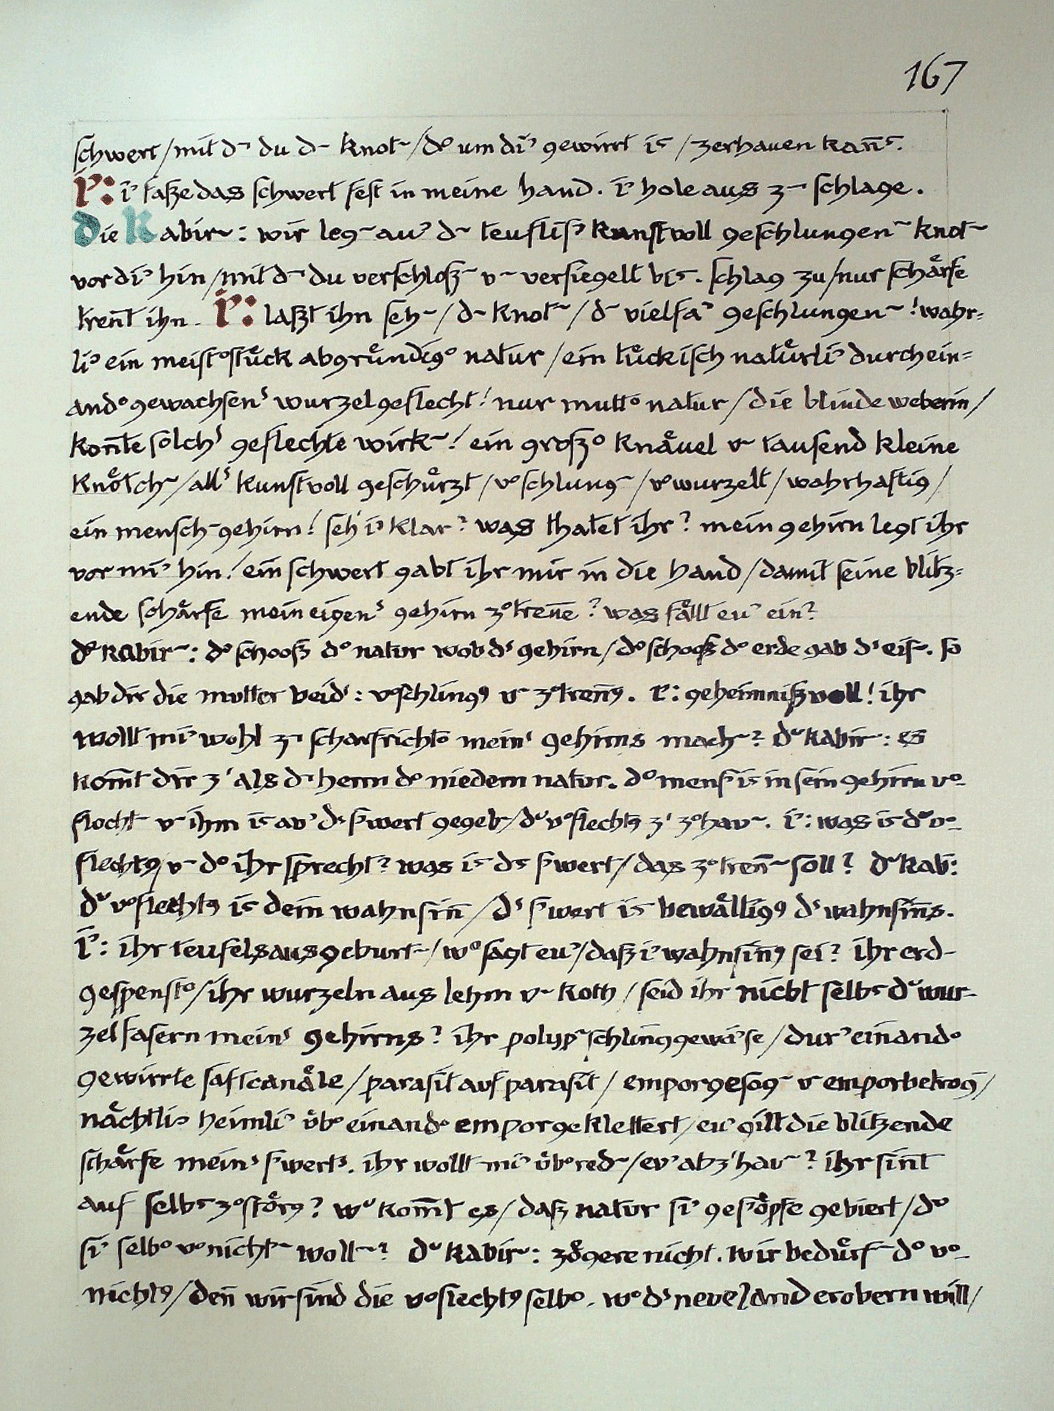 167
schwert/mit d⁻ du d⁻ knot⁻/d° um di᾽ gewirrt is/zerhauen kan̄s.
I᾽: i᾽ faße das schwert fest in meine hand. i᾽ hole aus z⁻ schlage.
Die Kabir⁻: wir leg⁻ au᾽ d⁻ teuflis᾽ kunstvoll geschlungen⁻ knot⁻
vor di᾽ hin/mit d⁻ du verschloß⁻ u⁻ versiegelt bis. schlag zu/nur schärfe
tren̄t ihn. I᾽: laßt ihn seh⁻/d⁻ knot⁻/d⁻ vielfa᾽ geschlungen⁻! wahr=
li᾽ ein meist°stück abgründig° natur/ein tückisch natürli᾽ durchein=
and° gewachsen᾽ wurzelgeflecht! nur mutt° natur/die blinde weberin/
kon̄te solch᾽ geflechte wirk⁻! ein groß° knäuel u⁻ tausend kleine
knötch⁻/all᾽ kunstvoll geschürzt/v°schlung⁻/v°wurzelt/wahrhaftig/
ein mensch⁻gehirn! seh᾽ i᾽ klar? was thatet ihr? mein gehirn legt ihr
vor mi᾽ hin! ein schwert gabt ihr mir in die hand/damit seine blitz=
ende schärfe mein eigen᾽ gehirn z°tren̄e? was fällt eu᾽ ein?
d° Kabir⁻: d° schooß d° natur wob d᾽ gehirn/d° schooß d° erde gab d᾽ eis⁻. so
gab dir die mutter beid᾽: v°schling⁹ u⁻ z°tren̄⁹. I᾽: geheimnißvoll! ihr
wollt mi᾽ wohl z⁻ scharfricht° mein᾽ gehirns mach⁻? d° Kabir⁻: es
kom̄t dir z᾽ als d⁻ herrn d° niedern natur. d° mens᾽ is in sein gehirn v°-
flocht⁻ u⁻ ihm is au᾽ d᾽ s᾽wert gegeb⁻/d° v°flecht⁹ z᾽ z°hau⁻. I᾽: was is d° v°-
flecht⁹/v⁻ d° ihr sprecht? was is d᾽ s᾽wert/das z°tren̄⁻ soll? d° Kab⁻:
d° v°flecht⁹ is dein wahnsin̄/d᾽ s᾽wert is bewältig⁹ d᾽ wahnsin̄s.
I᾽: ihr teufelsausgeburt⁻/w° sagt eu᾽/daß i᾽ wahnsin̄⁹ sei? ihr erd-
gespenst°/ihr wurzeln aus lehm u⁻ koth/seid ihr nicht selbs d° wur-
zelfasern mein᾽ gehirns? ihr polyp⁻schlinggewä᾽se/dur᾽einand°
gewirrte saftcanäle/parasit auf parasit/emporgesog⁻ u⁻ emporbetrog⁻/
nächtli° heimli᾽ üb° einand° emporgeklettert/eu᾽ gilt die blitzende
schärfe mein᾽ s᾽wert᾽. ihr wollt mi᾽ üb°red⁻/eu᾽ abz᾽hau⁻? ihr sin̄t
auf selbs z°stör⁹? w° kom̄t es/daß natur si᾽ ges᾽öpfe gebiert/d°
si᾽ selb° v°nicht⁻ woll⁻? d° Kabir⁻: zögere nicht. wir bedürf⁻ d° v°-
nicht⁹/den̄ wir sind die v°flecht⁹ selb°. w° d᾽ neue land erobern will/